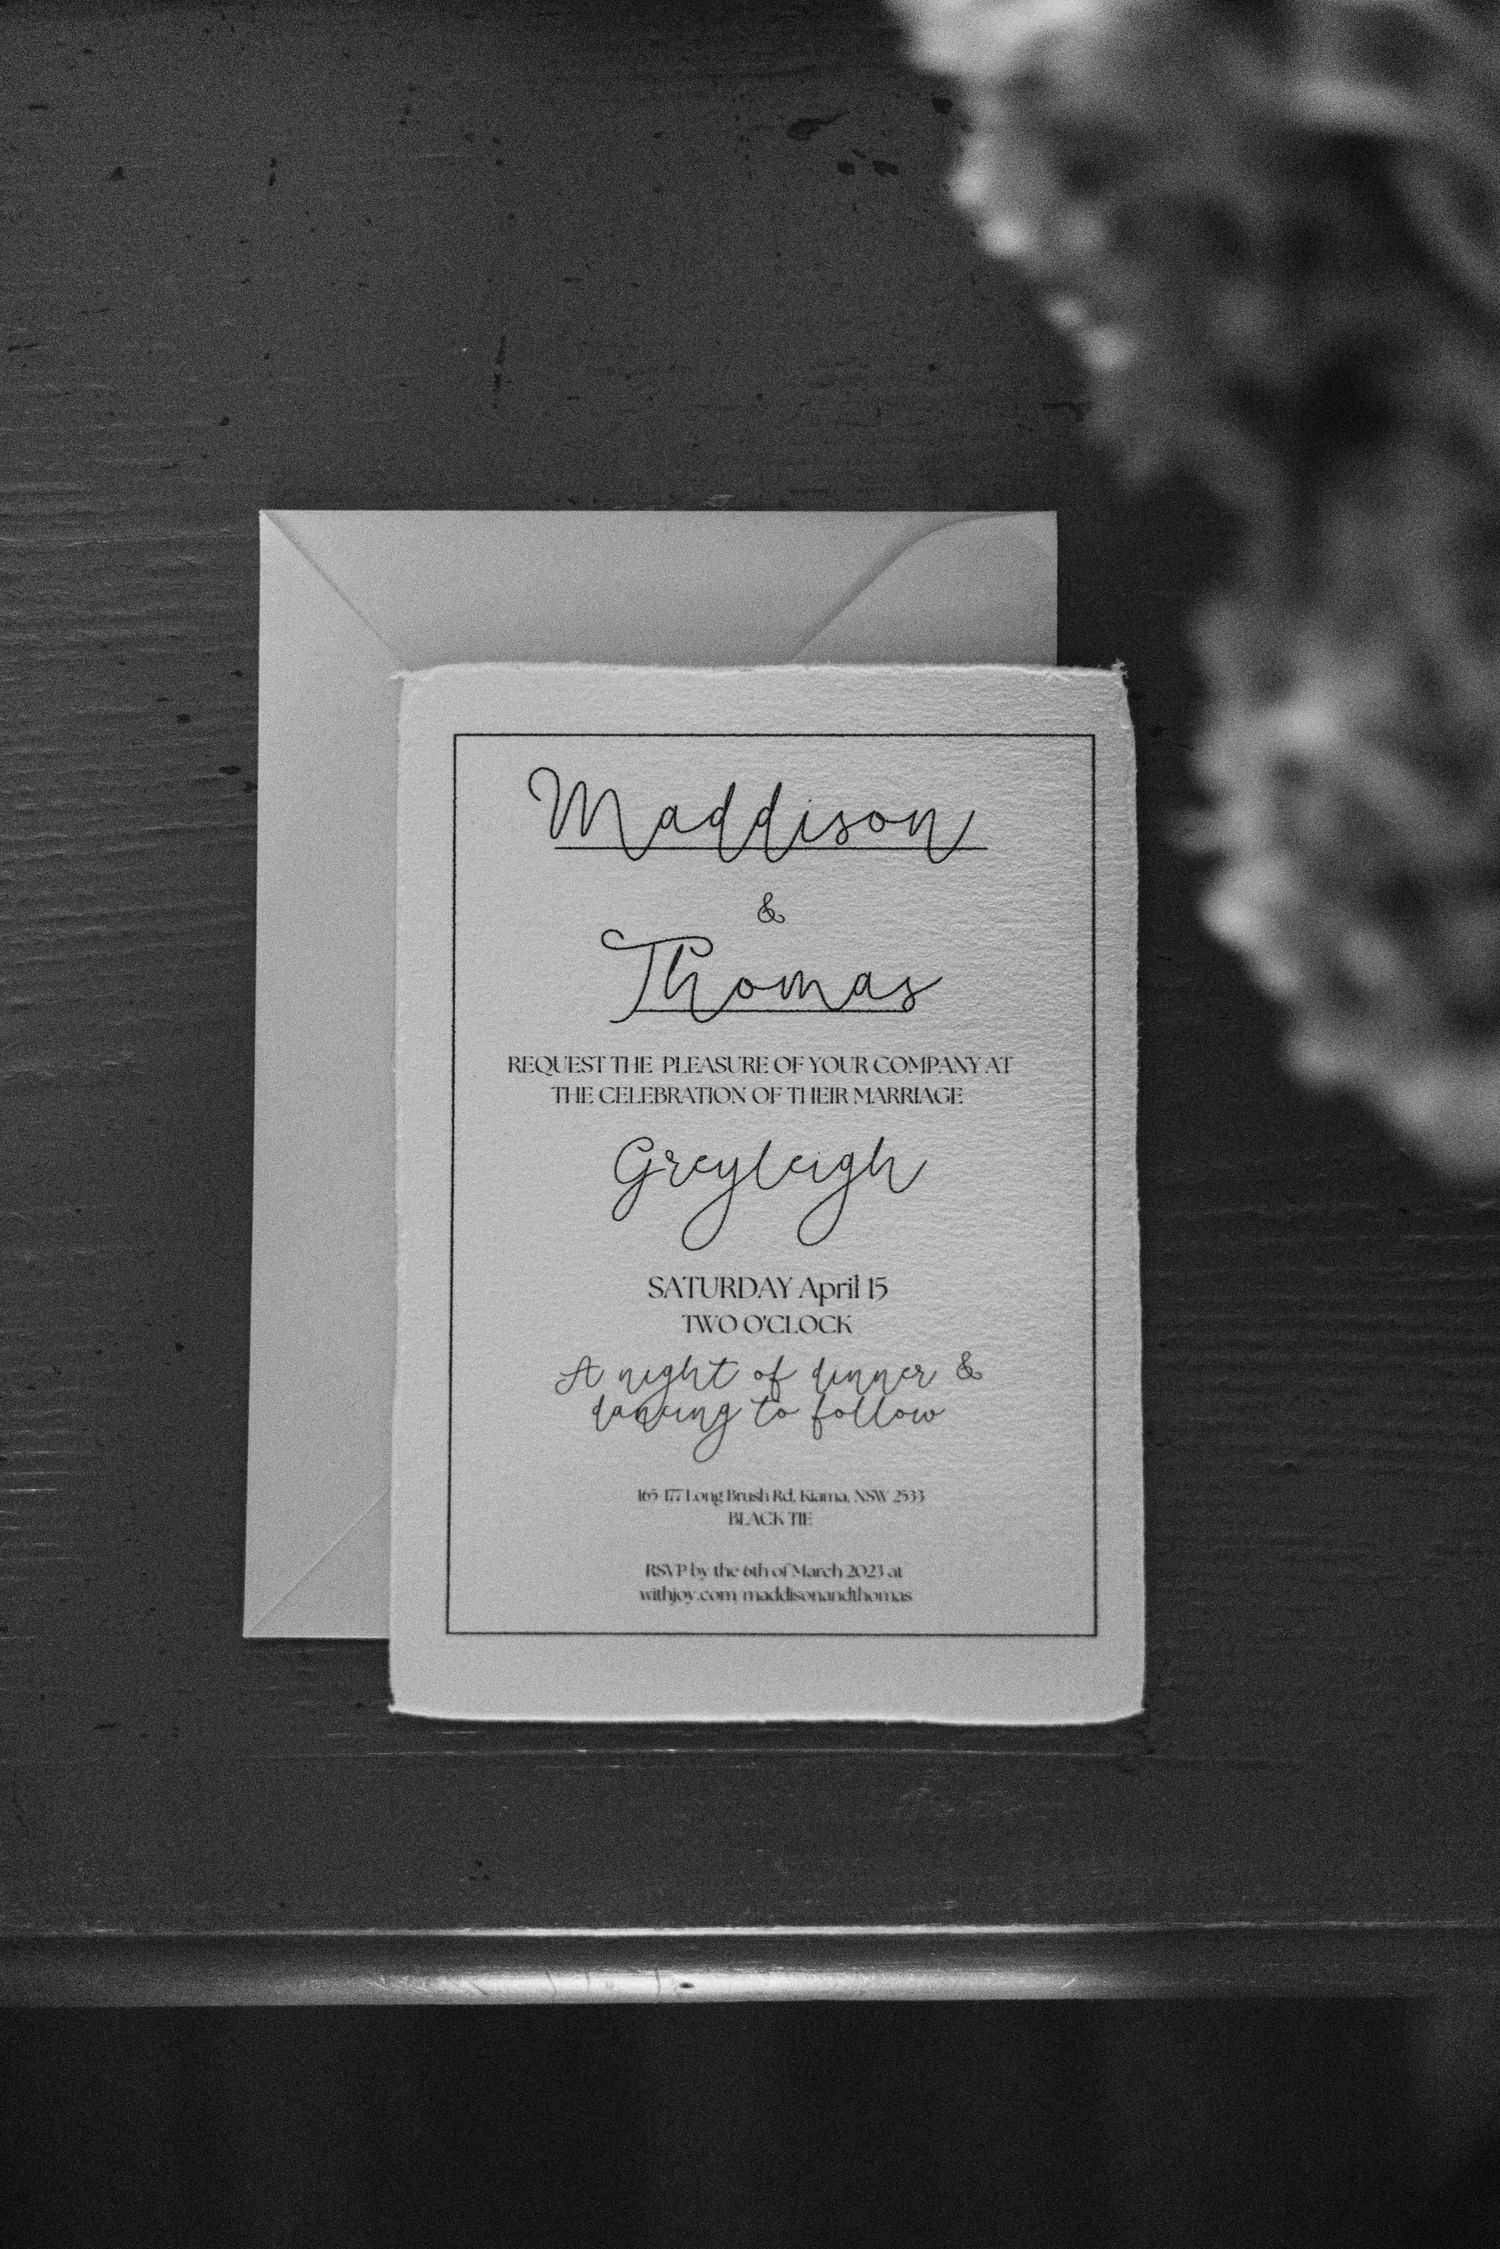 Maddison
&
Thomas
REQUEST THE PLEASURE OF YOUR COMPANY AT
THE CELEBRATION OF THEIR MARRIAGE
Greyleigh
SATURDAY April 15
TWO O'CLOCK
A night of dinner &
dancing to follow
165-177 Long Brush Rd, Kiama, NSW 2533
BLACK TIE
RSVP by the 6th of March 2023 at
withjoy.com/maddisonandthomas